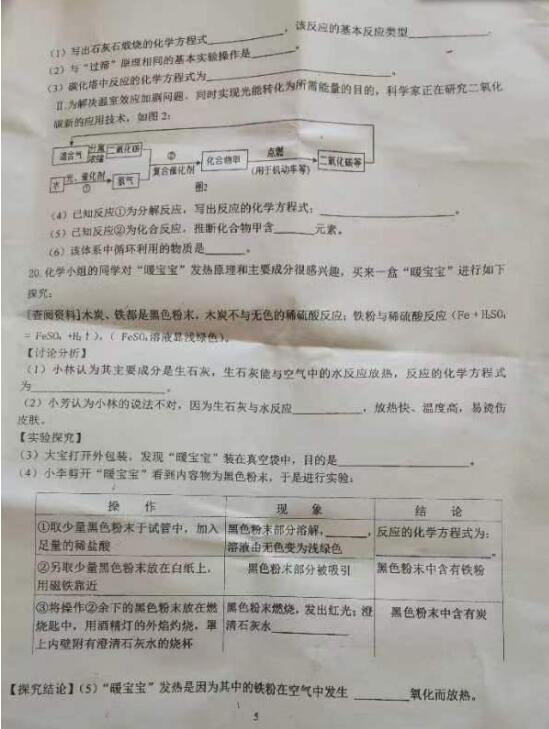 (1)写出石灰石煅烧的化学方程式________，该反应的基本反应类型________.
(2)与“过筛”原理相同的基本实验操作是________。
(3)碳化塔中反应的化学方程式为________
Ⅱ.为解决温室效应加剧问题，同时实现光能转化为所需能量的目的，科学家正在研究二氧化
碳新的应用技术，如图2:
混合气 分离 浓缩 二氧化碳 ② 复合催化剂 化合物甲 点燃 (用于机动车等) 二氧化碳等
水 光、催化剂 ① 氢气
图2
(4)已知反应①为分解反应，写出反应的化学方程式:________。
(5)已知反应②为化合反应，推断化合物甲含______元素。
(6)该体系中循环利用的物质是______。
20.化学小组的同学对“暖宝宝”发热原理和主要成分很感兴趣，买来一盒“暖宝宝”进行如下
探究:
[查阅资料]木炭、铁都是黑色粉末，木炭不与无色的稀硫酸反应；铁粉与稀硫酸反应(Fe + H₂SO₄
= FeSO₄ +H₂↑)，( FeSO₄溶液显浅绿色)。
【讨论分析】
(1)小林认为其主要成分是生石灰，生石灰能与空气中的水反应放热，反应的化学方程式
为________。
(2)小芳认为小林的说法不对，因为生石灰与水反应________，放热快、温度高，易烫伤
皮肤。
【实验探究】
(3)大宝打开外包装，发现“暖宝宝”装在真空袋中，目的是________。
(4)小李剪开“暖宝宝”看到内容物为黑色粉末，于是进行实验:
操 作 现 象 结 论
①取少量黑色粉末于试管中，加入 黑色粉末部分溶解，______， 反应的化学方程式为:
足量的稀盐酸 溶液由无色变为浅绿色 ________。
②另取少量黑色粉末放在白纸上， 黑色粉末部分被吸引 黑色粉末中含有铁粉
用磁铁靠近
③将操作②余下的黑色粉末放在燃 黑色粉末燃烧，发出红光；澄 黑色粉末中含有炭
烧匙中，用酒精灯的外焰灼烧，罩 清石灰水________
上内壁附有澄清石灰水的烧杯
【探究结论】(5)“暖宝宝”发热是因为其中的铁粉在空气中发生 ________氧化而放热。
5